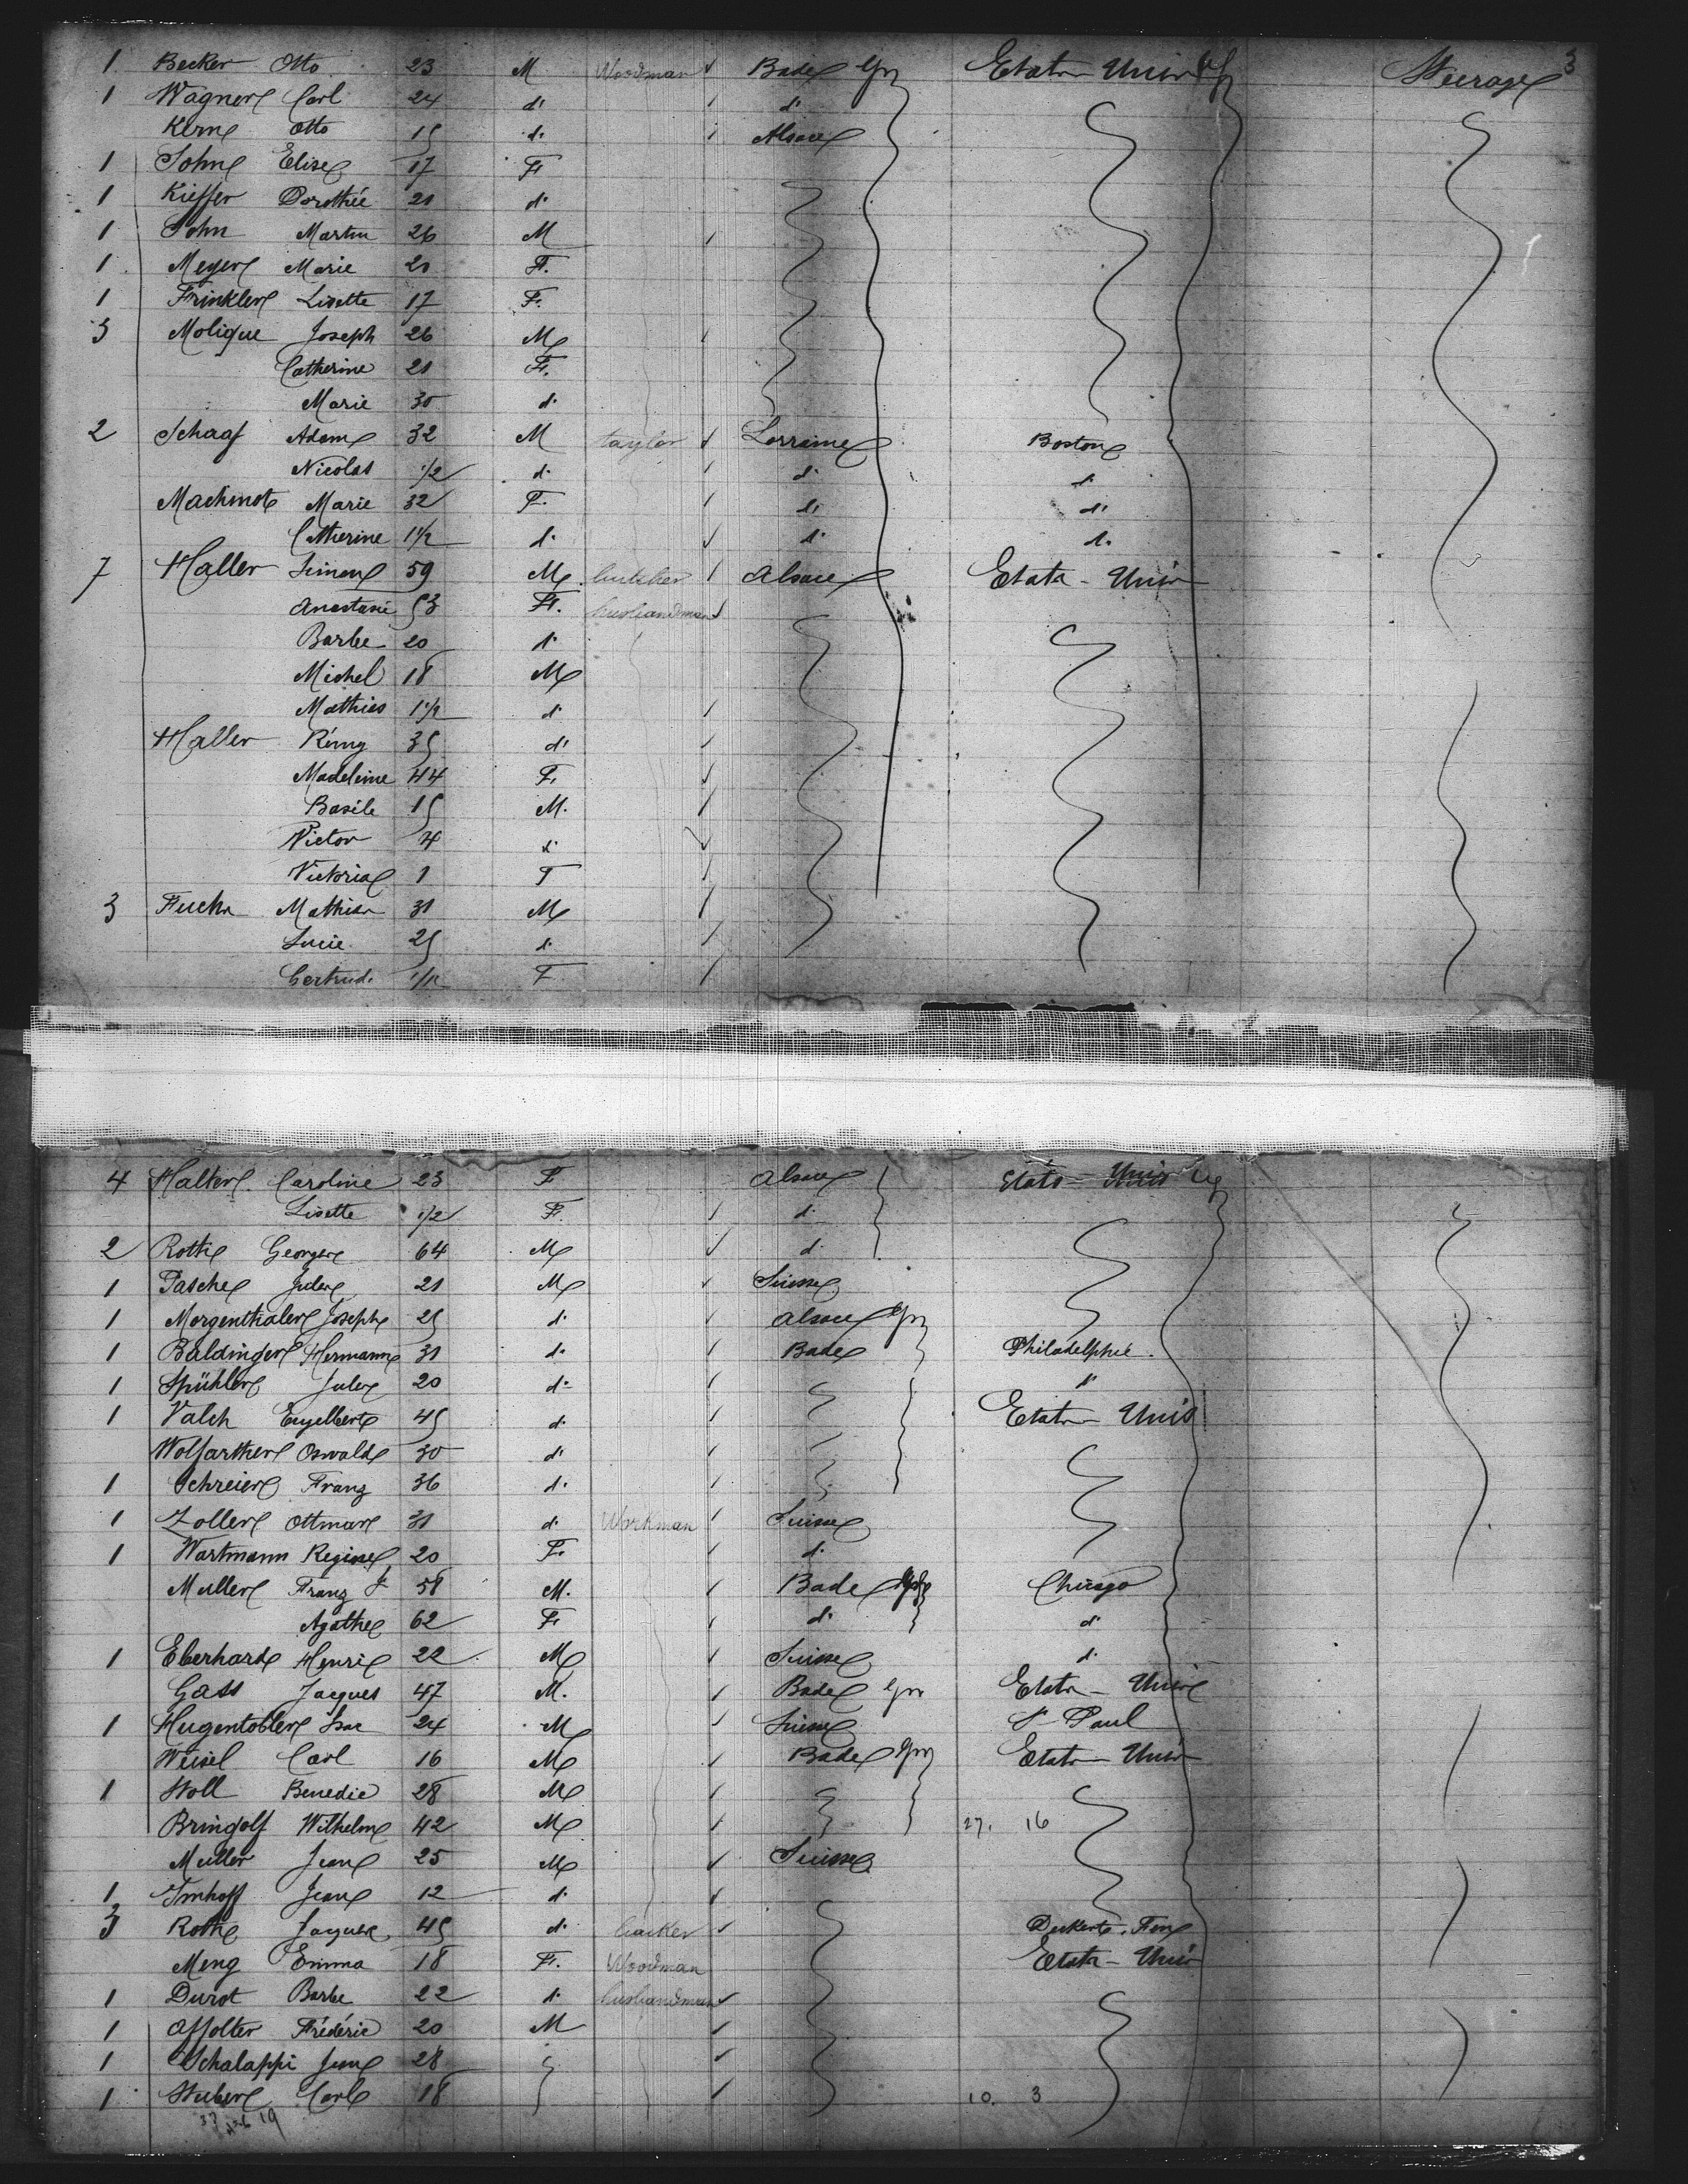 1 Becker Otto 23 M Woodman Bade Etats Unis Steerage 3
1 Wagner Carl 24 d° d°
Kern Otto 15 d° Alsace
1 John Elise 17 F
1 Kieffer Dorothée 21 d°
1 John Martin 26 M
1 Meyer Marie 21 F.
1 Frinkler Lisette 17 F.
3 Molique Joseph 26 M
Catherine 21 F.
Marie 30 d°
2 Schaaf Adam 32 M taylor Lorraine Boston
Nicolas 1/2 d° d° d°
Machmot Marie 32 F. d° d°
Catherine 1 1/2 d° d° d°
7 Haller Simon 59 M butcher Alsace Etats-Unis
Anastasie 53 F. husbandman
Barbe 20 d°
Michel 18 M
Mathias 1 1/2 d°
Haller Rémy 35 d°
Madeleine 44 F.
Basile 15 M.
Victor 4 d°
Victoria 1 F
3 Fuchs Mathias 31 M
Lucie 25 d°
Gertrud. F
4 Halter Caroline 23 F Alsace Etats-Unis
Lisette 1/2 F. d°
2 Roth Georges 64 M d°
1 Pasche Jules 21 M Suisse
1 Morgenthaler Joseph 25 d° Alsace
1 Baldinger Hermann 31 d° Bade Philadelphie.
1 Spühler Jules 20 d° d°
1 Valch Engelbert 45 d° Etats-Unis
Wolfarther Oswald 30 d°
1 Schreier Franz 36 d°
1 Zoller Ottmar 31 d° Workman Suisse
1 Wartmann Regine 20 F. d°
Muller Franz J 58 M. Bade Chicago
Agathe 62 F. d° d°
1 Eberhard Henri 22 M Suisse d°
Gass Jacques 47 M. Bade Etats-Unis
1 Hugentobler Isac 24 M Suisse St Paul
Weisel Carl 16 M Bade Etats-Unis
1 Stoll Benedic 28 M
Bringolf Wilhelm 42 M 27. 16
Muller Jean 25 M Suisse
1 Imhoff Jean 12 d°
3 Roth Jacques 45 d°
Meng Emma 18 F. Woodman Etats-Unis
1 Durot Barbe 22 d° husbandman
1 Affolter Frédéric 20 M
1 Schalappi Jean 28
1 Stuber Carl 18 10. 3
19